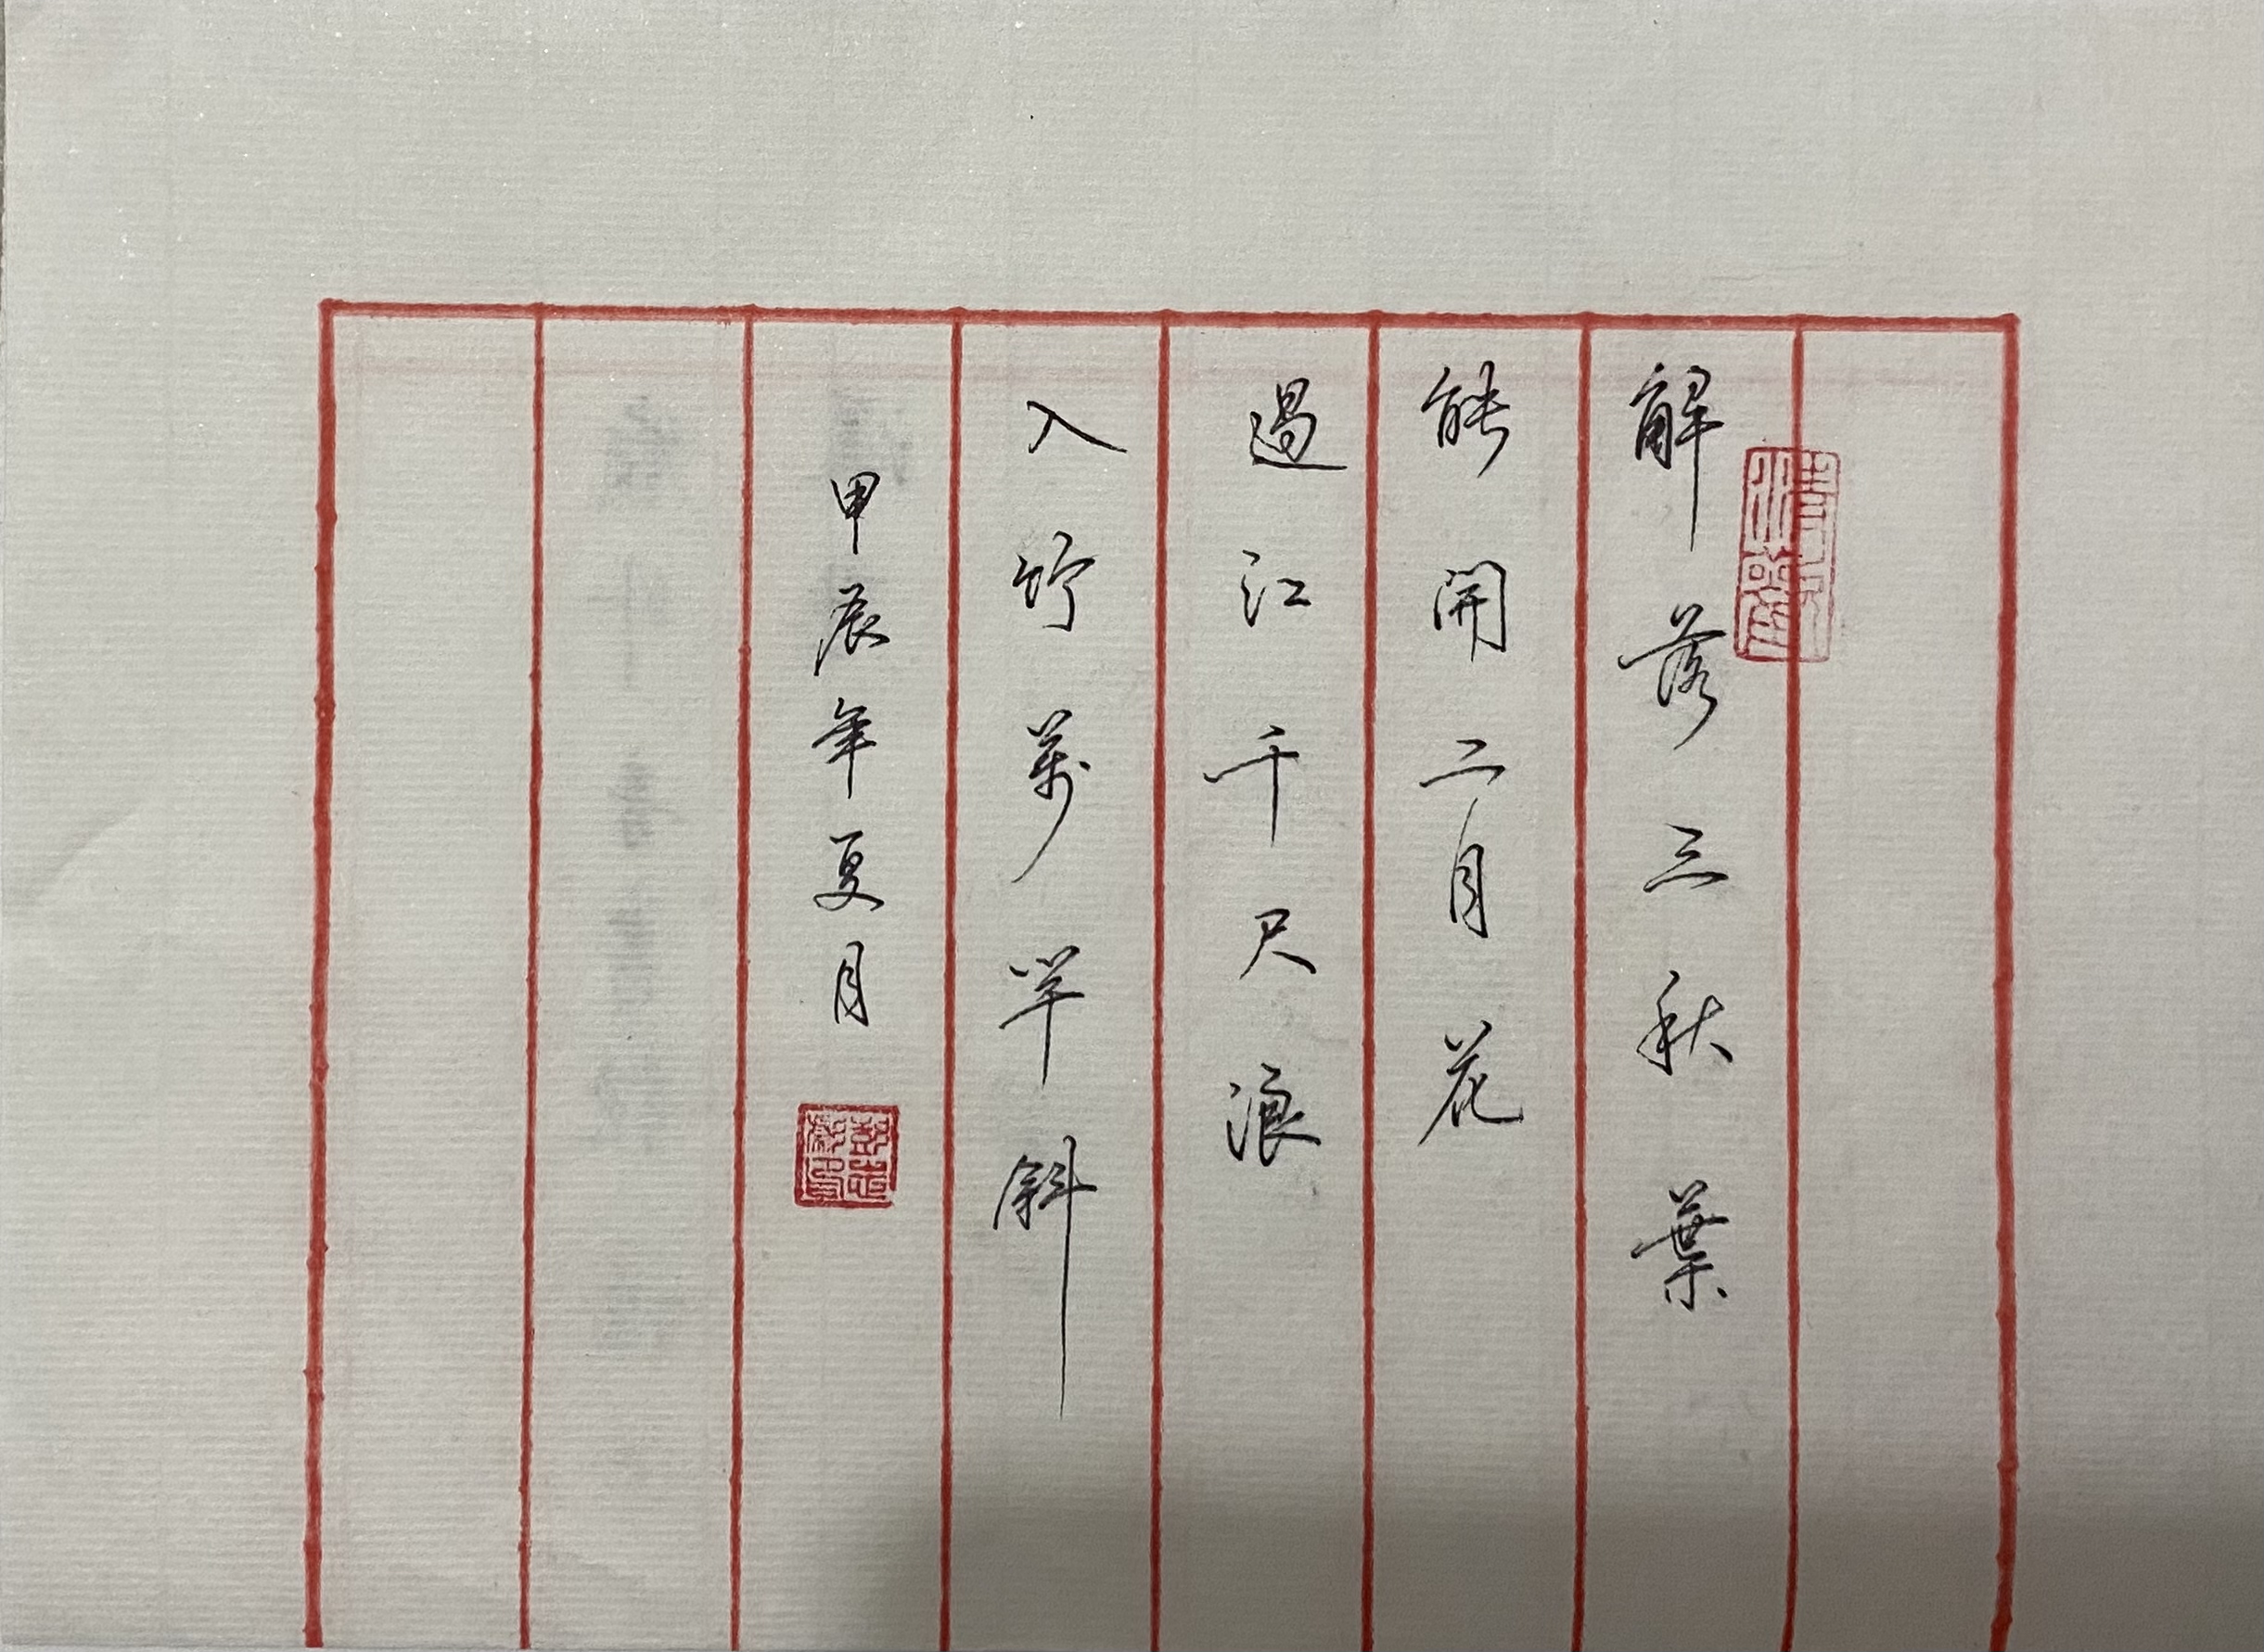 解落三秋葉
能開二月花
過江千尺浪
入竹萬竿斜
甲辰年夏月